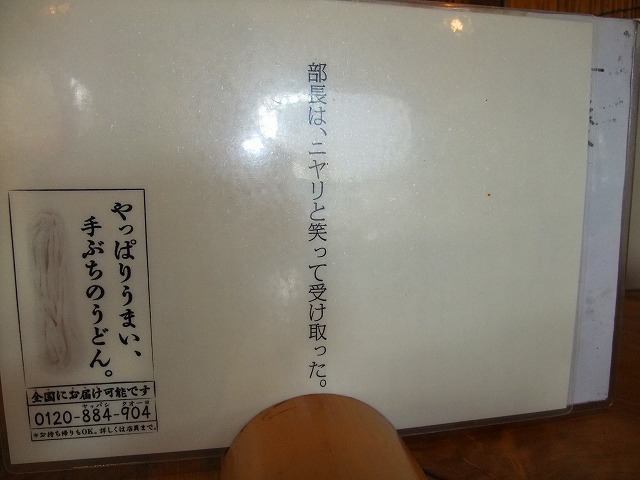 部長は、ニヤリと笑って受け取った。
やっぱりうまい、
手ぶちのうどん。
全国にお届け可能です
ヤッパシ クオーヨ
0120-884-904
※お持ち帰りもOK。詳しくは店員まで。